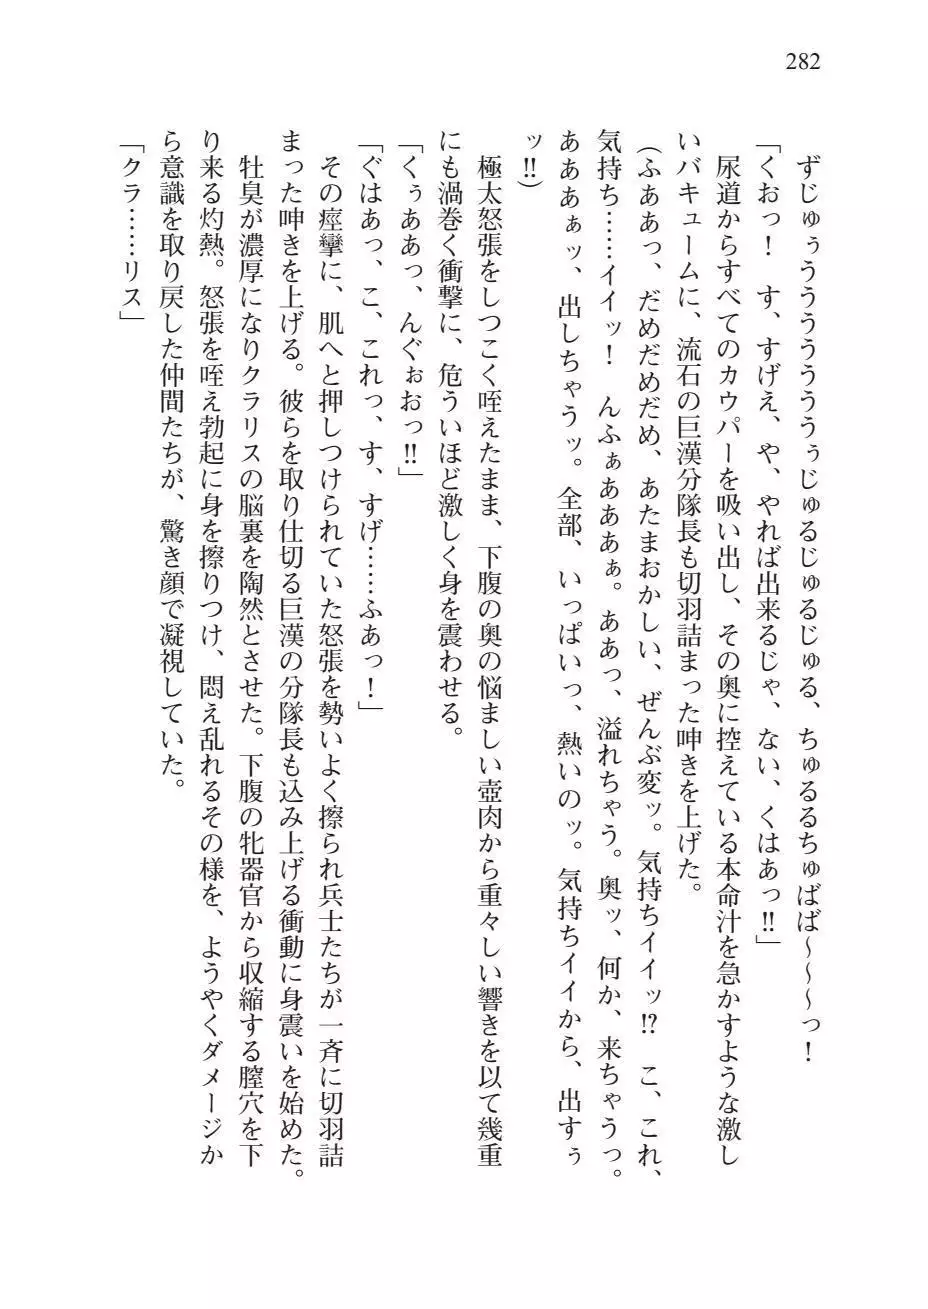 282
ずじゅぅうううううううぅじゅるじゅるじゅる、ちゅるるちゅばば～～～っ！
「くおっ！　す、すげえ、や、やれば出来るじゃ、ない、くはあっ‼」
尿道からすべてのカウパーを吸い出し、その奥に控えている本命汁を急かすような激し
いバキュームに、流石の巨漢分隊長も切羽詰まった呻きを上げた。
（ふああっ、だめだめだめ、あたまおかしい、ぜんぶ変ッ。気持ちイイッ⁉　こ、これ、
気持ち……イイッ！　んふぁあああぁ。ああっ、溢れちゃう。奥ッ、何か、来ちゃうっ。
ああああぁッ、出しちゃうッ。全部、いっぱいっ、熱いのッ。気持ちイイから、出すぅ
ッ‼）
極太怒張をしつこく咥えたまま、下腹の奥の悩ましい壺肉から重々しい響きを以て幾重
にも渦巻く衝撃に、危ういほど激しく身を震わせる。
「くぅああっ、んぐぉおっ‼」
「ぐはあっ、こ、これっ、す、すげ……ふあっ！」
その痙攣に、肌へと押しつけられていた怒張を勢いよく擦られ兵士たちが一斉に切羽詰
まった呻きを上げる。彼らを取り仕切る巨漢の分隊長も込み上げる衝動に身震いを始めた。
牡臭が濃厚になりクラリスの脳裏を陶然とさせた。下腹の牝器官から収縮する膣穴を下
り来る灼熱。怒張を咥え勃起に身を擦りつけ、悶え乱れるその様を、ようやくダメージか
ら意識を取り戻した仲間たちが、驚き顔で凝視していた。
「クラ……リス」